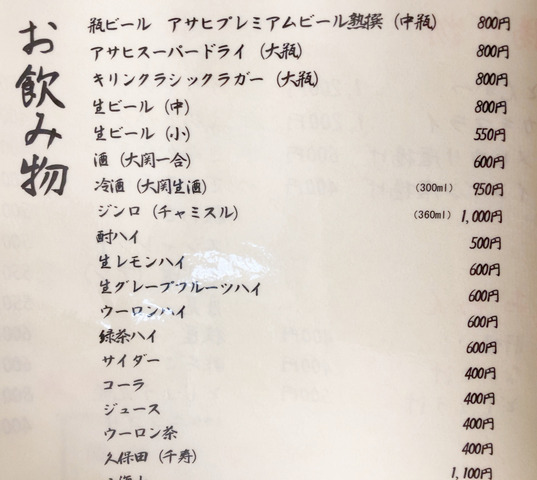 お飲み物
瓶ビール アサヒプレミアムビール熟撰（中瓶） 800円
アサヒスーパードライ（大瓶） 800円
キリンクラシックラガー（大瓶） 800円
生ビール（中） 800円
生ビール（小） 550円
酒（大関一合） 600円
冷酒（大関生酒） (300ml) 950円
ジンロ（チャミスル） (360ml) 1,000円
酎ハイ 500円
生レモンハイ 600円
生グレープフルーツハイ 600円
ウーロンハイ 600円
緑茶ハイ 600円
サイダー 400円
コーラ 400円
ジュース 400円
ウーロン茶 400円
久保田（千寿） 1,100円